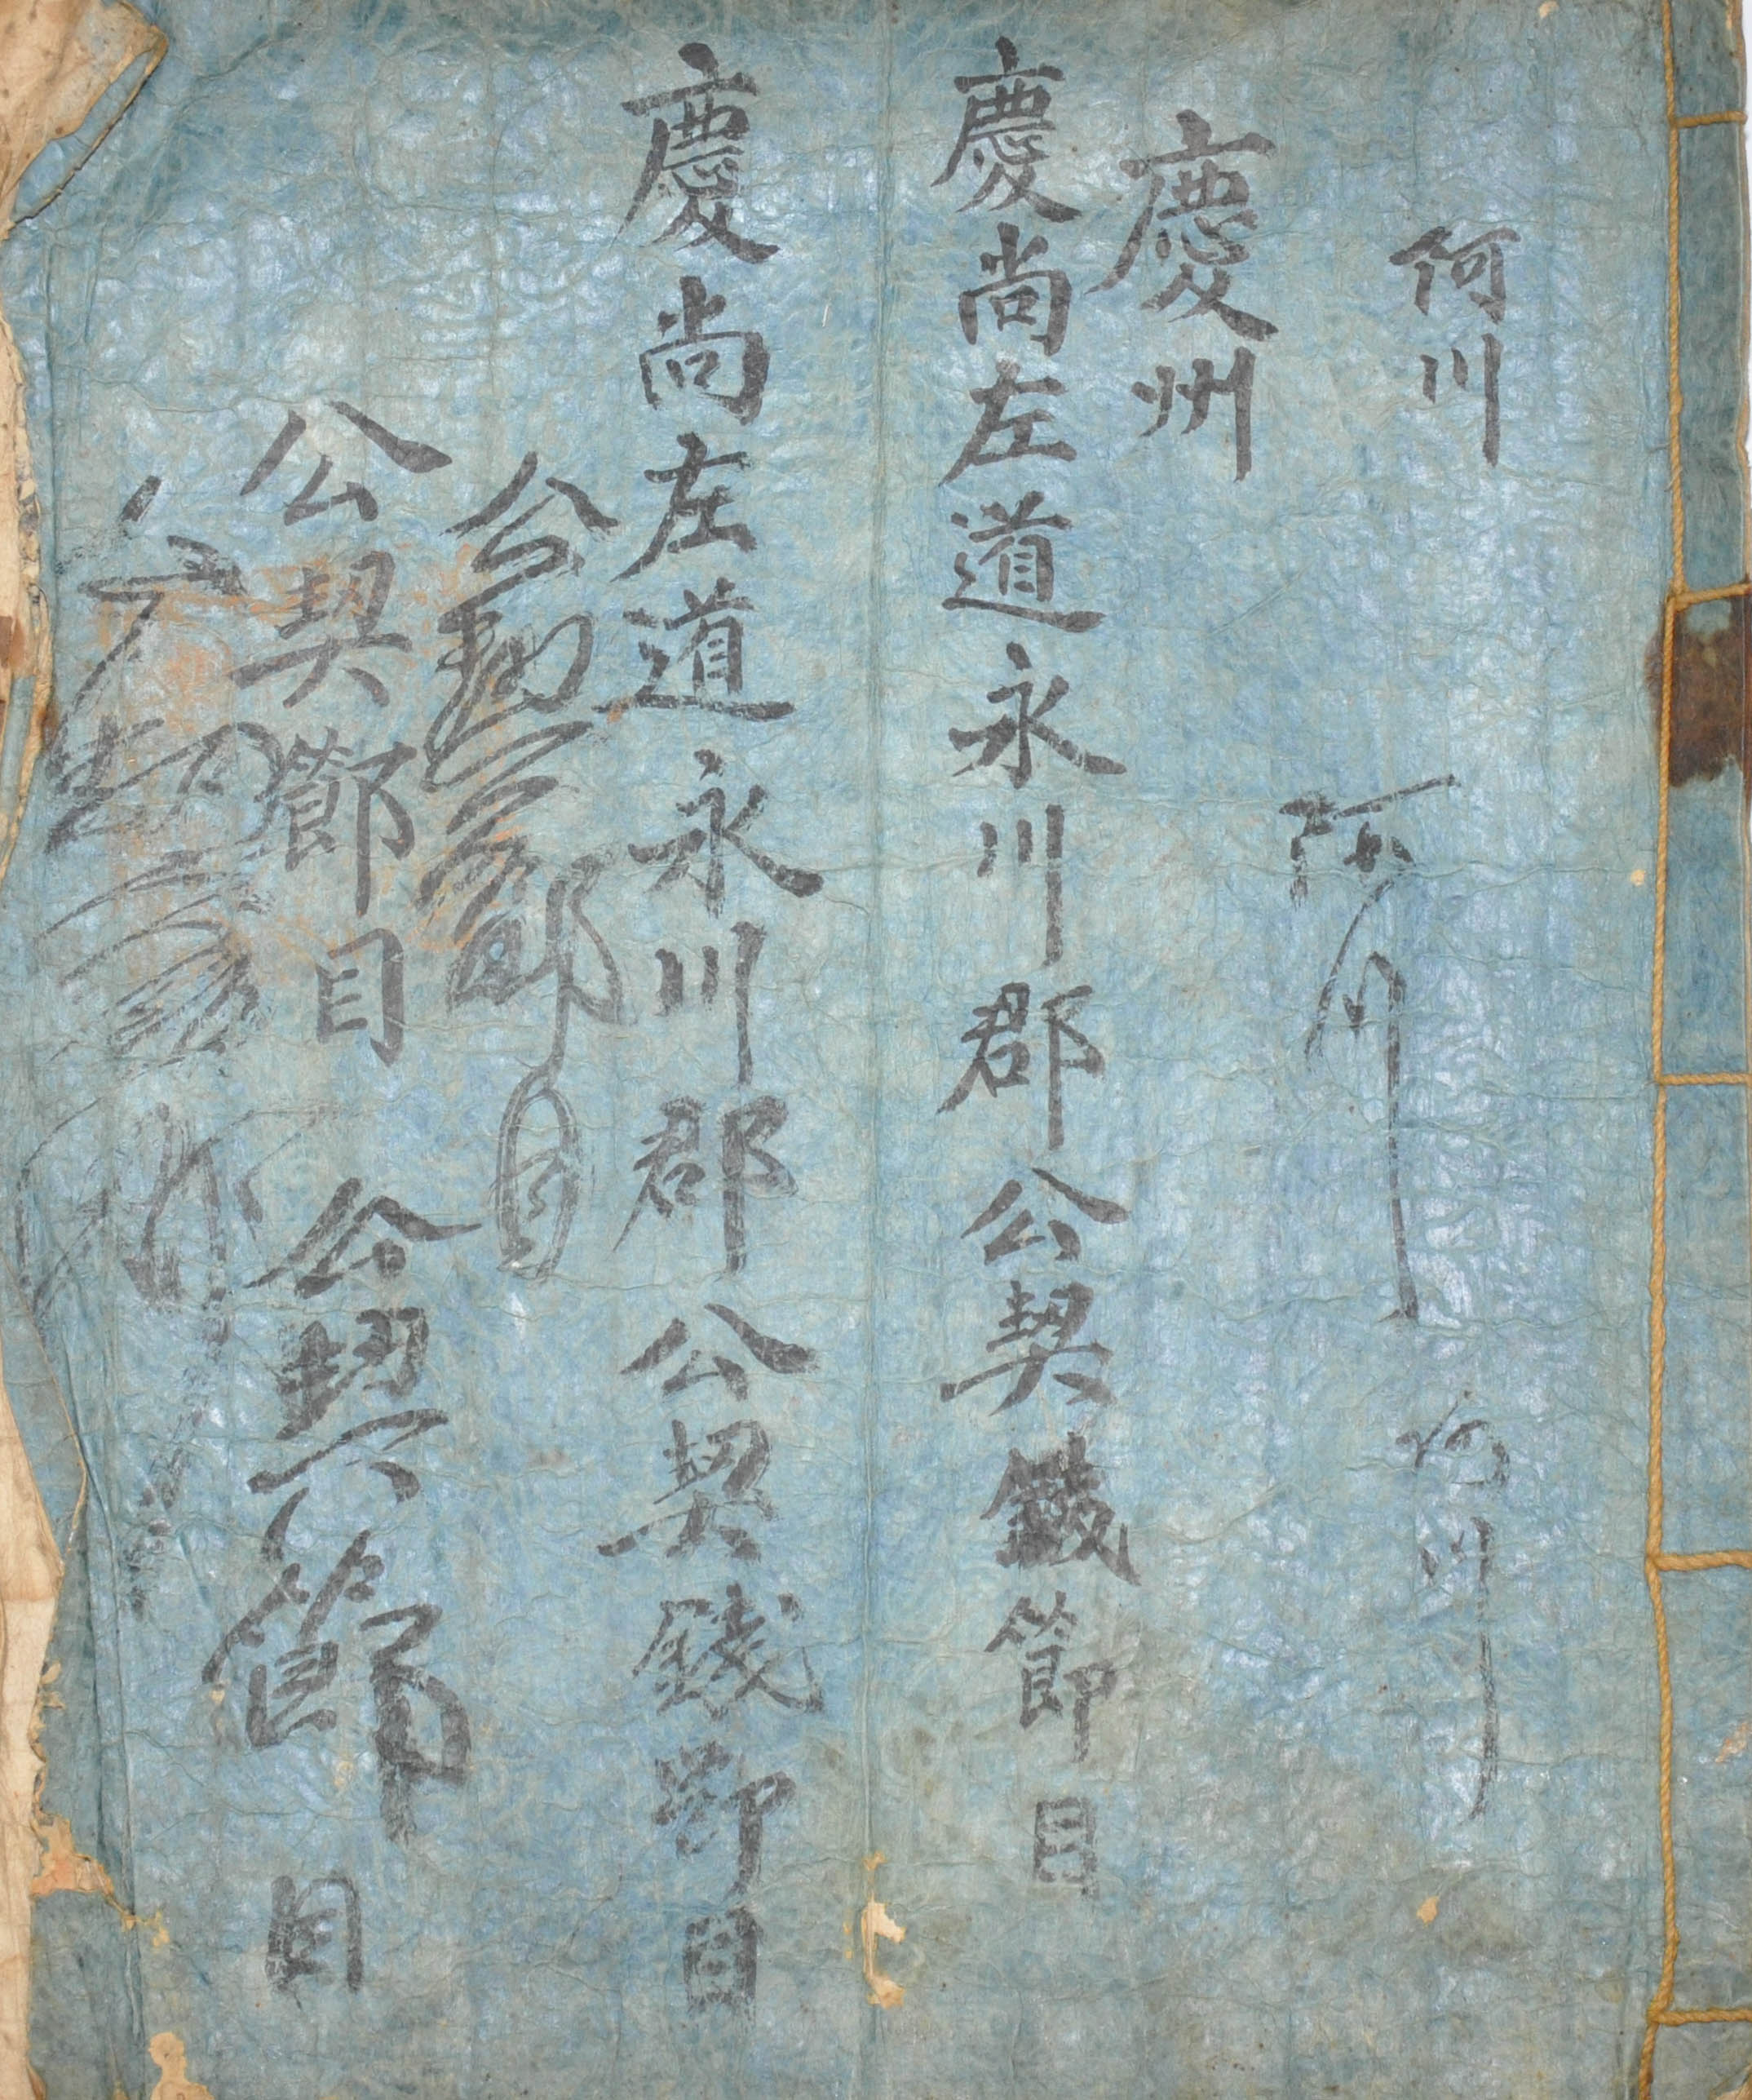 何川
阿川
何川
慶州
慶尚左道永川郡公契錢節目
慶尚左道永川郡公契錢節目
公契節目
公契節目
公契節目